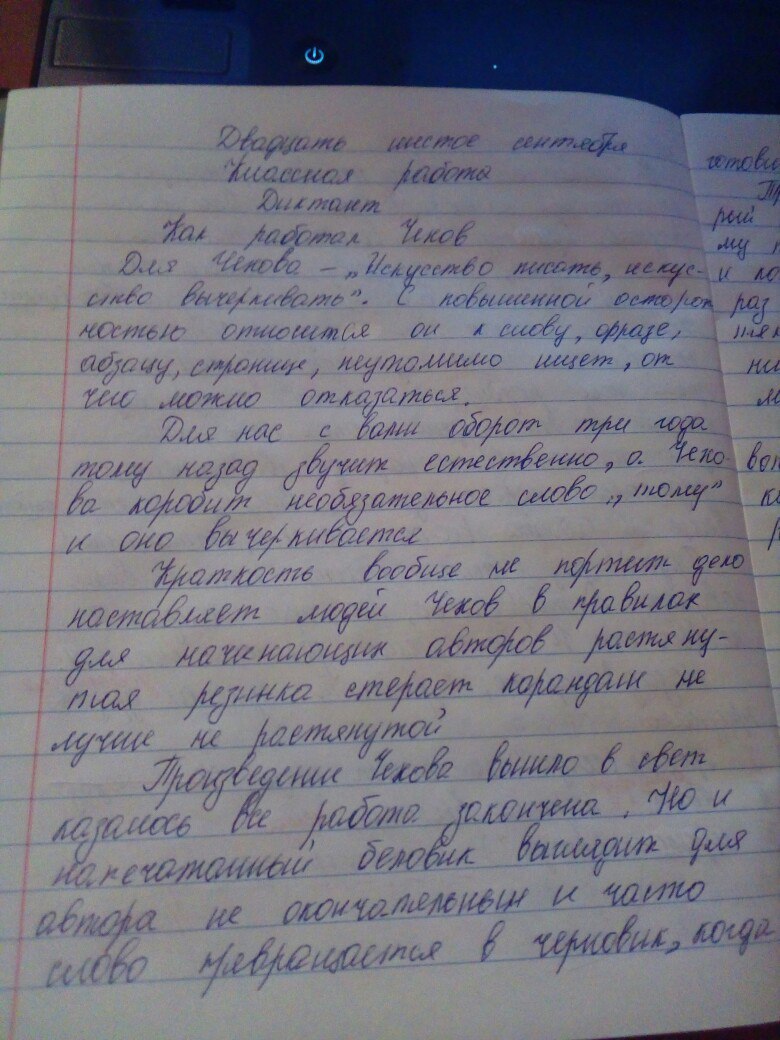 Двадцать шестое сентября
Классная работа
Диктант
Как работал Чехов
Для Чехова – „Искусство писать, искус-
ство вычеркивать". С повышенной осторож
ностью относится он к слову, фразе,
абзацу, странице, неутомимо ищет, от
чего можно отказаться.
Для нас с вами оборот три года
тому назад звучит естественно, а Чехо-
ва коробит необязательное слово „тому"
и оно вычеркивается
Краткость вообще не портит дело
наставляет людей Чехов в правилах
для начинающих авторов растяну-
тая резинка стерает карандаш не
лучше не растянутой
Произведение Чехова вышло в свет
казалось вся работа закончена. Но и
напечатанный беловик выглядит для
автора не окончательным и часто
слово превращается в черновик, когда
готови
рый
му
и по
раз